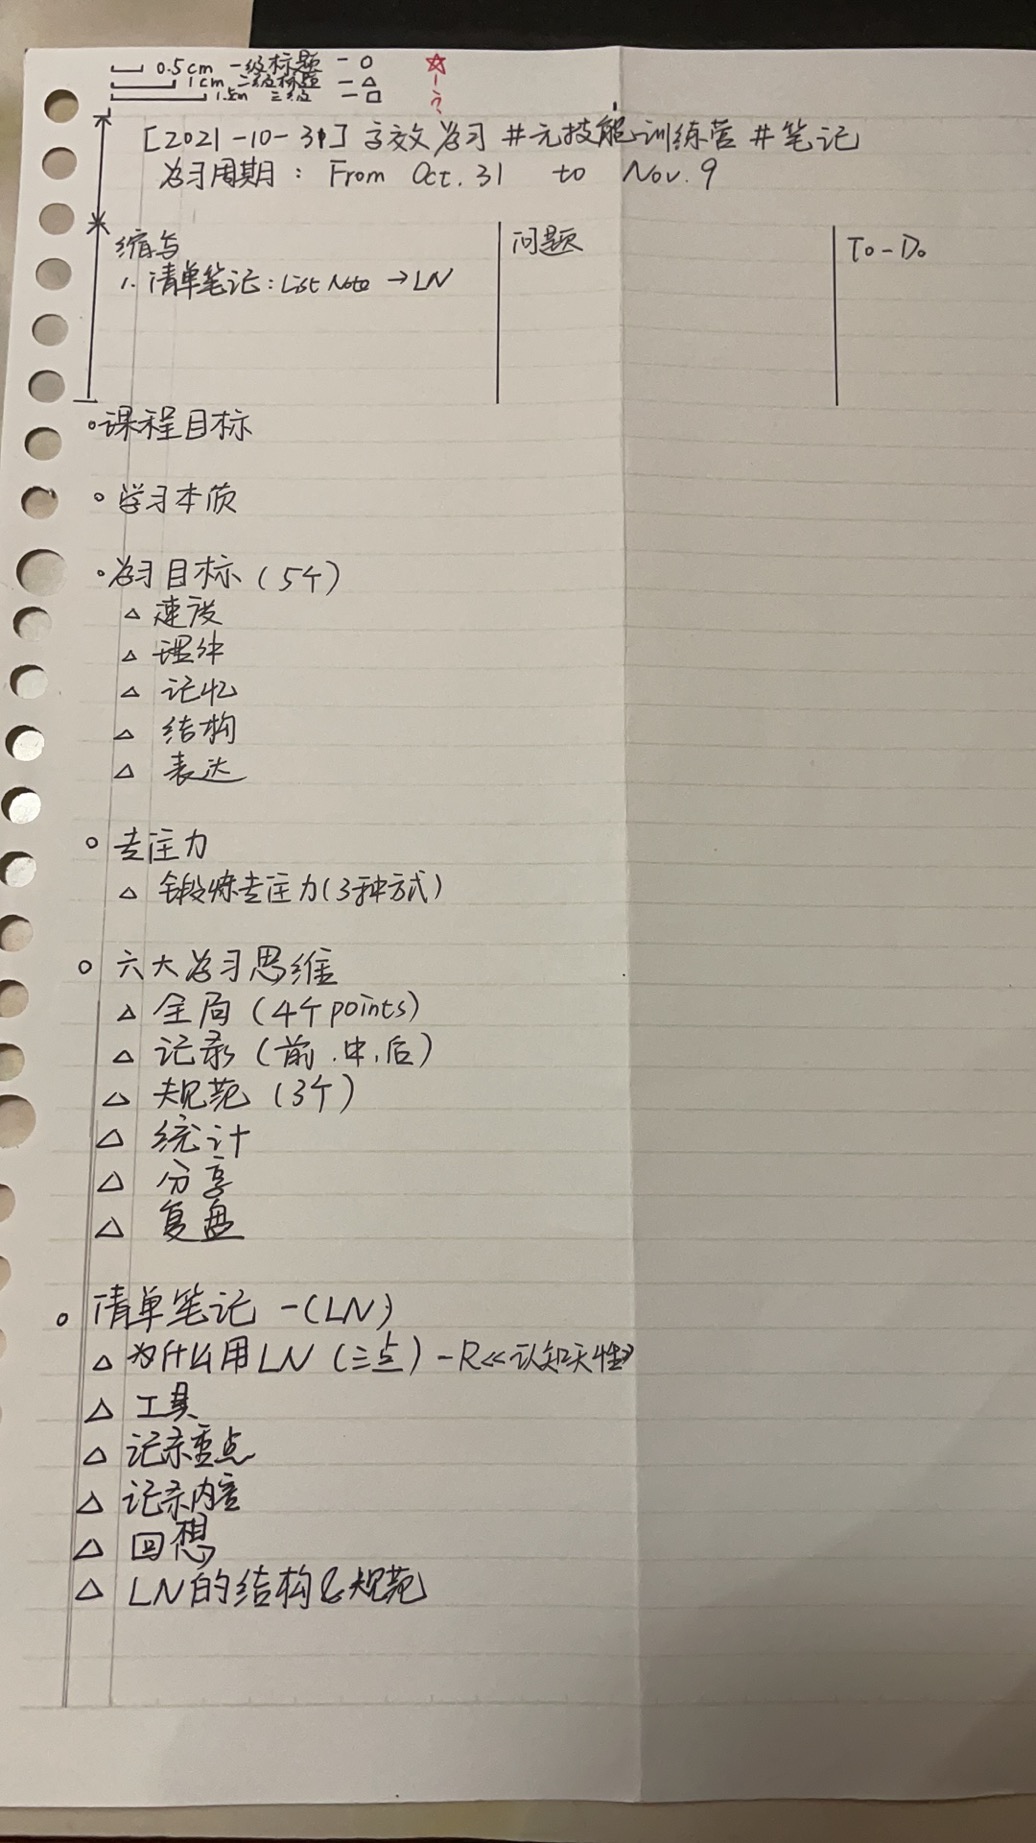 0.5cm 一级标题 - ○ ☆
1cm 二级标题 - △ !
1.5cm 三级 - □ ?
[2021-10-31] 高效学习 #元技能训练营 #笔记
学习周期: From Oct.31 to Nov.9
缩写 问题 To-Do
1. 清单笔记: List Note → LN
○课程目标
○学习本质
○学习目标(5个)
△ 速度
△ 理解
△ 记忆
△ 结构
△ 表达
○ 专注力
△ 锻炼专注力(3种方式)
○ 六大学习思维
△ 全局(4个points)
△ 记录(前.中.后)
△ 规范(3个)
△ 统计
△ 分享
△ 复盘
○ 清单笔记 -(LN)
△ 为什么用LN(三点)-R《认知天性》
△ 工具
△ 记录重点
△ 记录内容
△ 回想
△ LN的结构&规范